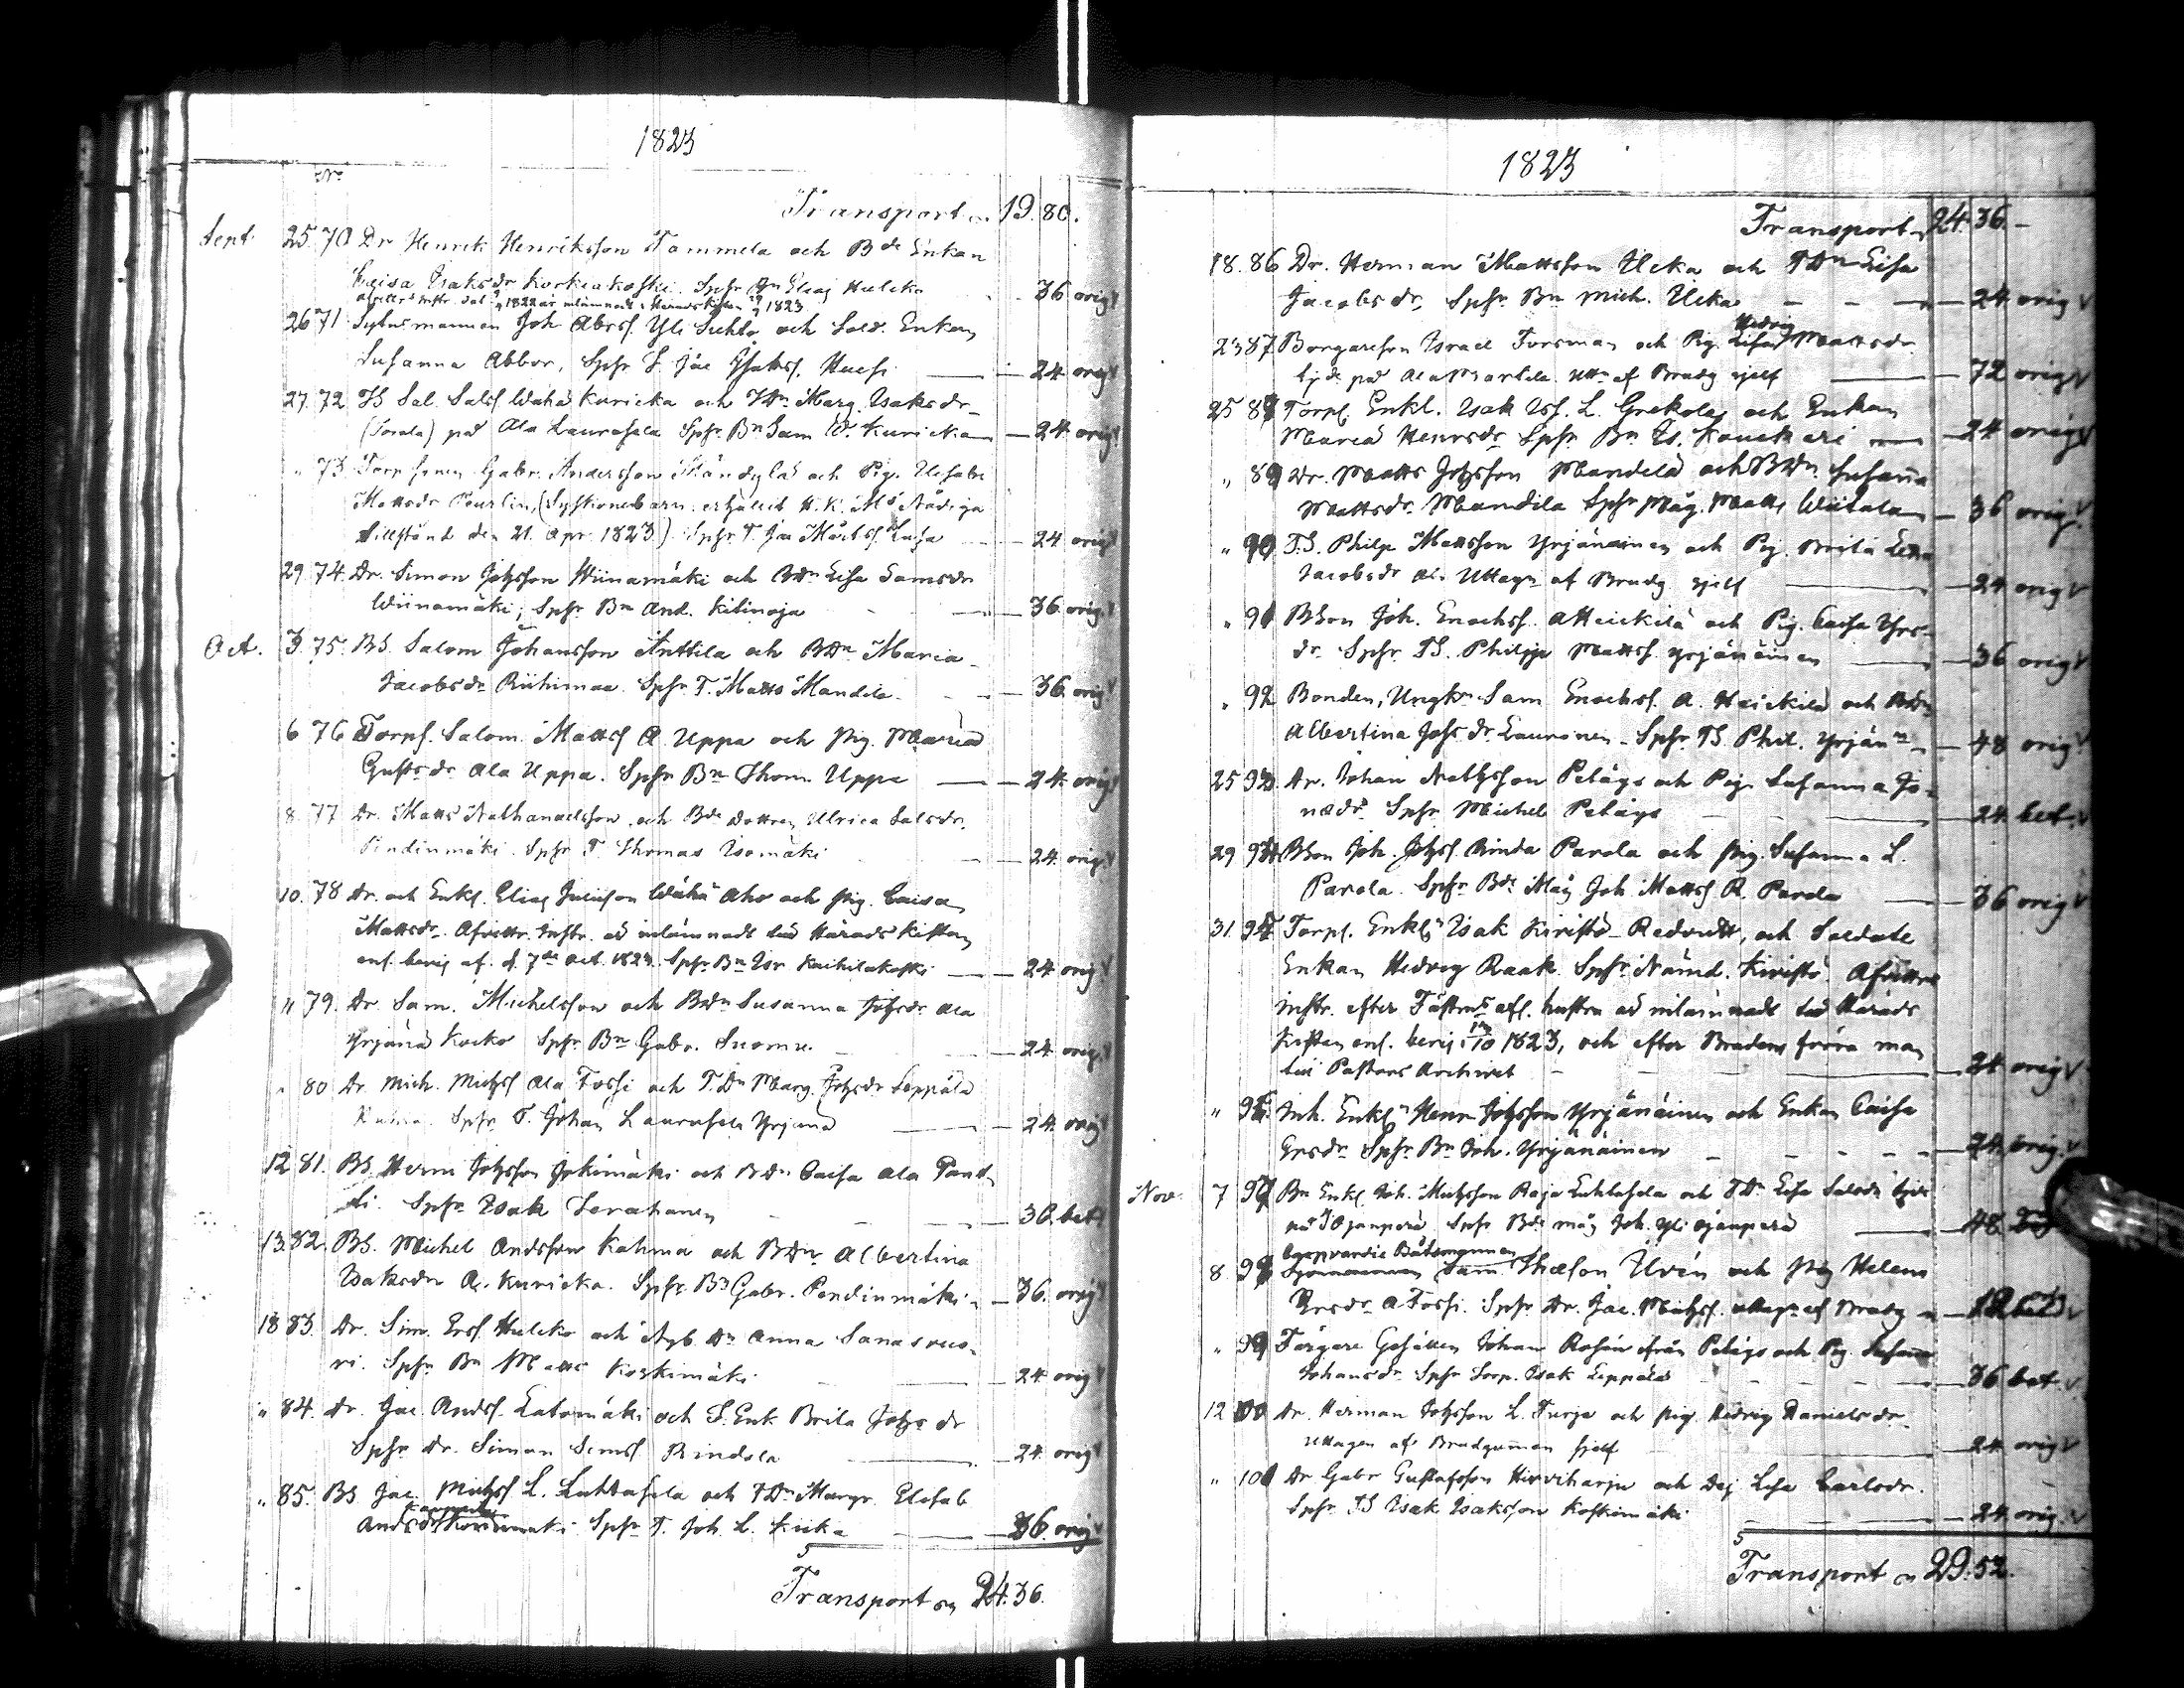 1823
No
Transport 19. 80.
Sept. 25. 70 Dr Henrik Henriksson Tammela och Bde Enkan
Caisa Isaksdr Korkiakoski. Spfr Elias Hulcko 36 orig
1823
26 71 Joh Abrss. Yli och Sold. Enkan
Susanna Abbor, Spfr Jac 24 orig
27. 72 Sal. Salss Wähä Kuricka och TDn Marg. Isaksdr
på Ala Laurosela Spfr Bn Sam W. Kuricka 24. orig
" 73 Gabr. Andersson Mändylä och Pig.
Mattsdr (Syskonebarn erhållit K. K. Mts Nådiga
tillstånd den 21. Apr. 1823.) Spfr T. Jac 24 orig
29. 74. Dr. Simon Johsson Wiinamäki och BDn Lisa Samsdr
Wiinamäki; Spfr Bn And. Kilinoja 36. orig.
Oct. 3. 75. BS. Salom Johansson Anttila och BDn Maria
Jacobsdr Riihimaa. Spfr T. Matts Mandila 36. orig
6 76 Torps. Salom. Mattss A Uppa och Pig. Maria
Gustsdr Ala Uppa. Spfr Bn Thom. Uppa 24. orig
8. 77 Dr. Matts Nathanaelsson och Bde dottren Ulrica Salsdr.
Pendinmäki. Spfr T. Thomas Isomäki 24. orig
10. 78 Dr. och Enkl. Elias Wähä Aho och Pig. Caisa
Mattsdr. Afvittr. Instr. är inlämnadt uti Härads Kistan
enl. bevis af d. 7de Oct. 1823. Spfr Bn Isr 24 orig
" 79. Dr. Sam. Michelsson och BDn Susanna Johsdr Ala
Yrjänä Kocko Spfr Bn Gabr. 24. orig
" 80 Dr. Mich. Michss Ala Fossi och T.Dn Marg. Johsdr Leppälä
Spfr T. Johan Yrjänä 24. orig
12 81. BS. Herm Johsson Jokimäki och BDn Caisa Ala Pand
ti. Spfr Isak 36. bet
13. 82. BS. Michel Andsson Kahma och BDn Albertina
Isaksdr A. Kuricka. Spfr. Bn Gabr. Pendinmäki 36. orig
18 83. Dr. Sim. Erss Hulcko och Dn Anna Sanasvuo-
ri. Spfr Bn Matts Koskimäki 24 orig
" 84. Dr. Jac. Andss. Latomäki och S. Enk Brita Johs dr
Spfr Dr. Simon Simss Rindola 24. orig
" 85. BS Jac. Michss L. Luhtasela och TDn Margr. Elisab
Andsdr Spfr T. Joh. L. 36. orig
Transport 24. 36.
1823
Transport 24. 36.
18. 86 Dr. Herman Mattsson Ucka och TDn Lisa
Jacobsdr. Spfr Bn Mich. Ucka 24. orig
Hedvig
23 87. Israel Forsman och Pig. Mattsdr.
på Ala Martila. Uttn af Brudg sjelf 72 orig
25 88 Torps. Enkl. Isak Iss. L. Grekola och Enkan
Maria Henrsdr Spfr Bn Is. 24 orig
" 89 Dr. Matts Johsson Mandila och BDn Susanna
Mattsdr. Mandila Spfr Måg. Matts Wiitala 36 orig.
" 90 T.S. Philip Mattsson Yrjänäinen och Pig. Brita Lena
Jacobsdr Uttagn af Brudg sjelf 24 orig
" 91 BSon Joh. Enochss. A Heickilä och Pig. Caisa
dr. Spfr TS. Philip Mattss. Yrjänäinen 36 orig
" 92 Bonden, Ungkn Sam Enochss. A. Heickilä och BDn
Albertina Johsdr Laurinen. Spfr TS. Phil. Yrjänn 48 orig
25 93. Dr. Johan Pelägs och Pig. Susanna Jo-
nædr. Spfr Michel Pelägs 24. bet.
29 94 BSon Joh. Johss. Rinda Parola och Pig. Susanna L.
Parola. Spfr Bde Måg Joh. Mattss R. Parola 36 orig
31. 95 Torps. Enkl. Isak Kiristö Redovitt, och Soldate
Enkan Hedvig Raak. Spfr Nämd. Kiristö. Afvittr
instr. efter Fästmns afl. hustru är inlämnadt uti Härads
Kistan enl. bevis 1823, och efter Brudens förra man
till Pastors Archivet 24 orig
" 96. Inh. Enkl. Henr Johsson Yrjänäinen och Enkan Caisa
Ersdr Spfr Bn Joh. Yrjänäinen 24. orig.
Nov. 7 97 Bn Enkl. Joh. Michsson Raja Luhtasela och TDn Lisa Salsdr
på Spfr Bde måg Joh. Yli Ojanperä 48.
Båtsmannen
8. 98 Sam. Thæson Uvén och Pig Helena
Ersdr A Fossi. Spfr Dr. Jac. Michss. uttagn af Brudg 12 bet
" 99 Färgare Gesällen Johan Rosén ifrån Pelägs och Pig. Susanna
Johansdr Spfr Isak Leppälä 36 bet.
12 100 Dr. Herman Johsson L. Turja och Pig. Hedvig Danielsdr
uttagen af Brudgummen sjelf 24. orig
" 101 Dr Gabr Gustafsson Hirviharju och Dej Lisa Carlsdr.
Spfr TS Isak Isaksson Koskimäki 24. orig.
Transport 29. 52.